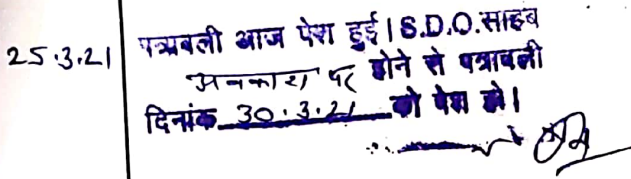 25.3.21 पत्रावली आज पेश हुई। S.D.O. साहब
अवकाश पर होने से पत्रावली
दिनांक 30.3.21 को पेश हो।